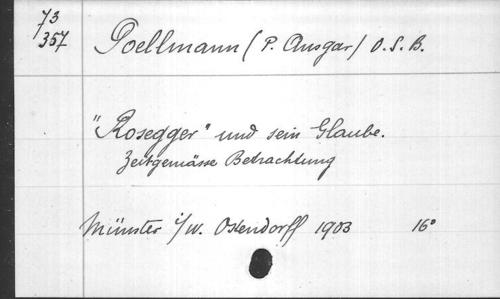 73
357
Poellmann (P. Ansgar) O.S.B.
"Rosegger" und sein Glaube.
Zeitgemässe Betrachtung
Münster i/W. Ostendorff 1903 16°